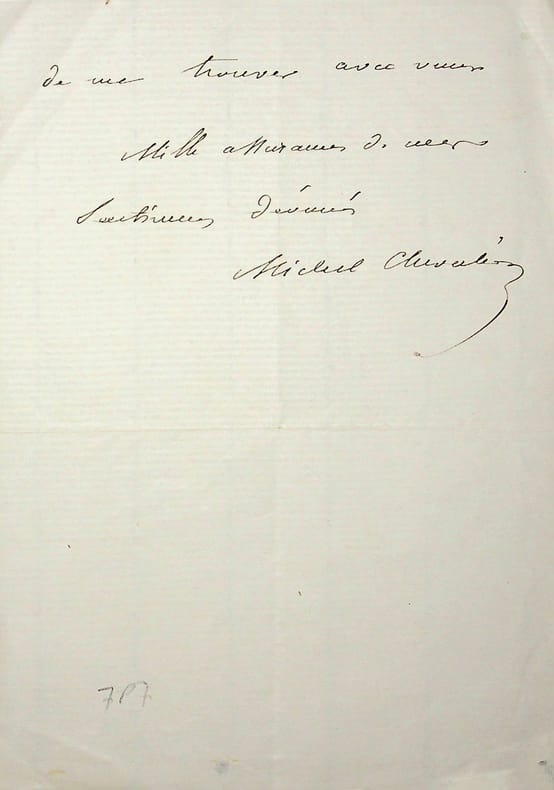 de me trouver avec vous
Mille assurances de mes
Sentimens dévoués
Michel Chevalier
7P7